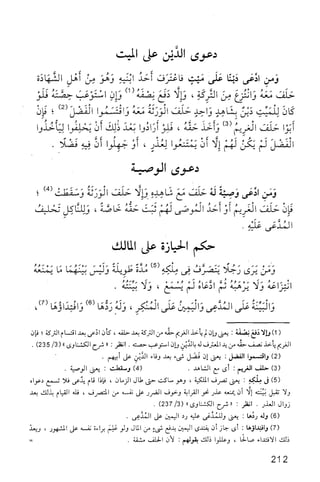 دعوى الدَّيْن على الميت
ومَن ادّعَى دَيْنًا عَلَى مَيّتٍ فاعْتَرَفَ أَحَدُ ابْنَيهِ وَهُوَ مِنْ أَهْلِ الشَّهَادَةِ
حَلَفَ مَعَهُ وَانْتُزِعَ مِنَ التَّرِكَةِ ، وَإِلَّا دَفَعَ نِصْفَهُ (1) وَإِن اسْتَوْعَبَ حِصَّتَهُ فَلَوْ
كَانَ لِلْمَيّتِ دَيْنٌ بِشَاهِدٍ وَاحِدٍ حَلَفَ الْوَرَثَةُ مَعَهُ وَاقْتَسَمُوا الْفَضْلَ (2) ؛ فَإِنْ
أَبَوْا حَلَفَ الْغَرِيمُ (3) وَأَخَذَ حَقَّهُ ، فَلَوْ أَرَادُوا بَعْدَ ذَلِكَ أَنْ يَحْلِفُوا لِيَأْخُذُوا
الْفَضْلَ لَمْ يَكُنْ لَهُمْ إِلَّا أَنْ يَمْتَنِعُوا لِعُذْرٍ ، أَوْ جَهِلُوا أَنَّ فِيهِ فَضْلًا .
دعوى الوصية
وَمَنِ ادَّعَى وَصِيَّةً لَهُ حَلَفَ مَعَ شَاهِدِهِ وَإِلَّا حَلَفَ الْوَرَثَةُ وَسَقَطَتْ (4) ؛
فَإِنْ حَلَفَ الْغَرِيمُ أَوْ أَحَدُ الْمُوصَى لَهُمْ ثَبَتَ حَقُّهُ خَاصَّةً ، وَلِلنَّاكِلِ تَحْلِيفُ
الْمُدَّعَى عَلَيْهِ .
حكم الحيازة على المالك
وَمَنْ يَرَى رَجُلًا يَتَصَرَّفُ فِي مِلْكِهِ (5) مُدَّةً طَوِيلَةً وَلَيْسَ بَيْنَهُمَا مَا يَمْنَعُهُ
انْتِزَاعَهُ وَلَا يَرْهَبُهُ ثُمَّ ادَّعَاهُ لَمْ يُسْمَعْ ، وَلَا بَيِّنَتُهُ .
وَالْبَيّنَةُ عَلَى الْمُدَّعِي وَالْيَمِينُ عَلَى الْمُنْكِرِ ، وَلَهُ رَدُّهَا (6) وَافْتِدَاؤُهَا (7) ،
(1) وإلا دفع نصفه : يعني وإن لم يأخذ الغريم حقه من التركة بعد حلفه ، كأن ادّعى بعد اقتسام التركة ؛ فإن
الغريم يأخذ نصف حقه من يد المعترف له بالدَّيْن وإن استوعب حصته . انظر : « شرح الكشناوي » (3/ 235) .
(2) واقتسموا الفضل : يعني إن فَضَلَ شيء بعد وفاء الدَّيْن على أبيهم .
(3) حلف الغريم : أي مع الشاهد .
(4) وسقطت : يعني الوصية .
(5) في مِلْكِهِ : يعني تصرف الملكية ، وهو ساكت حتى طال الزمان ، فإذا قام يدَّعي فلا تسمع دعواه
ولا تقبل بيّنته إلّا أن يمنعه عذر نحو القرابة وخوف الضرر على نفسه من المتصرف ، فله القيام بذلك بعد
زوال العذر . انظر : « شرح الكشناوي » (3/ 237) .
(6) وله ردّها : يعني وللمُدَّعى عليه رد اليمين على المُدَّعِي .
(7) وافتداؤها : أي جاز أن يفتدي اليمين بدفع شيءٍ من المال ولو عَلِمَ براءة نفسه على المشهور ، ويعدّ
ذلك الافتداء صالحًا ، وعللوا ذلك بقولهم : لأن الحلف مشقة . =
212